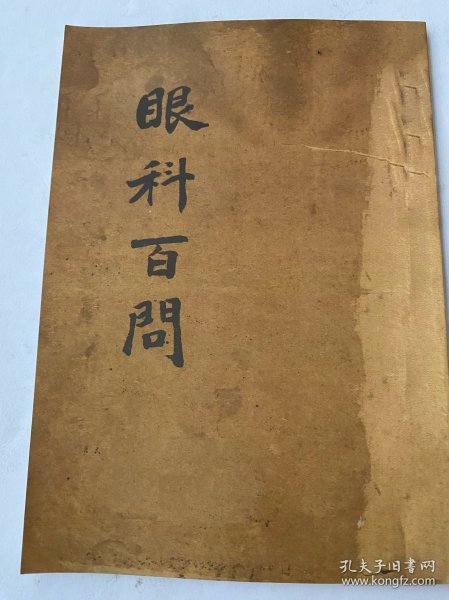 眼科百問
孔夫子旧书网
www.kongfz.com